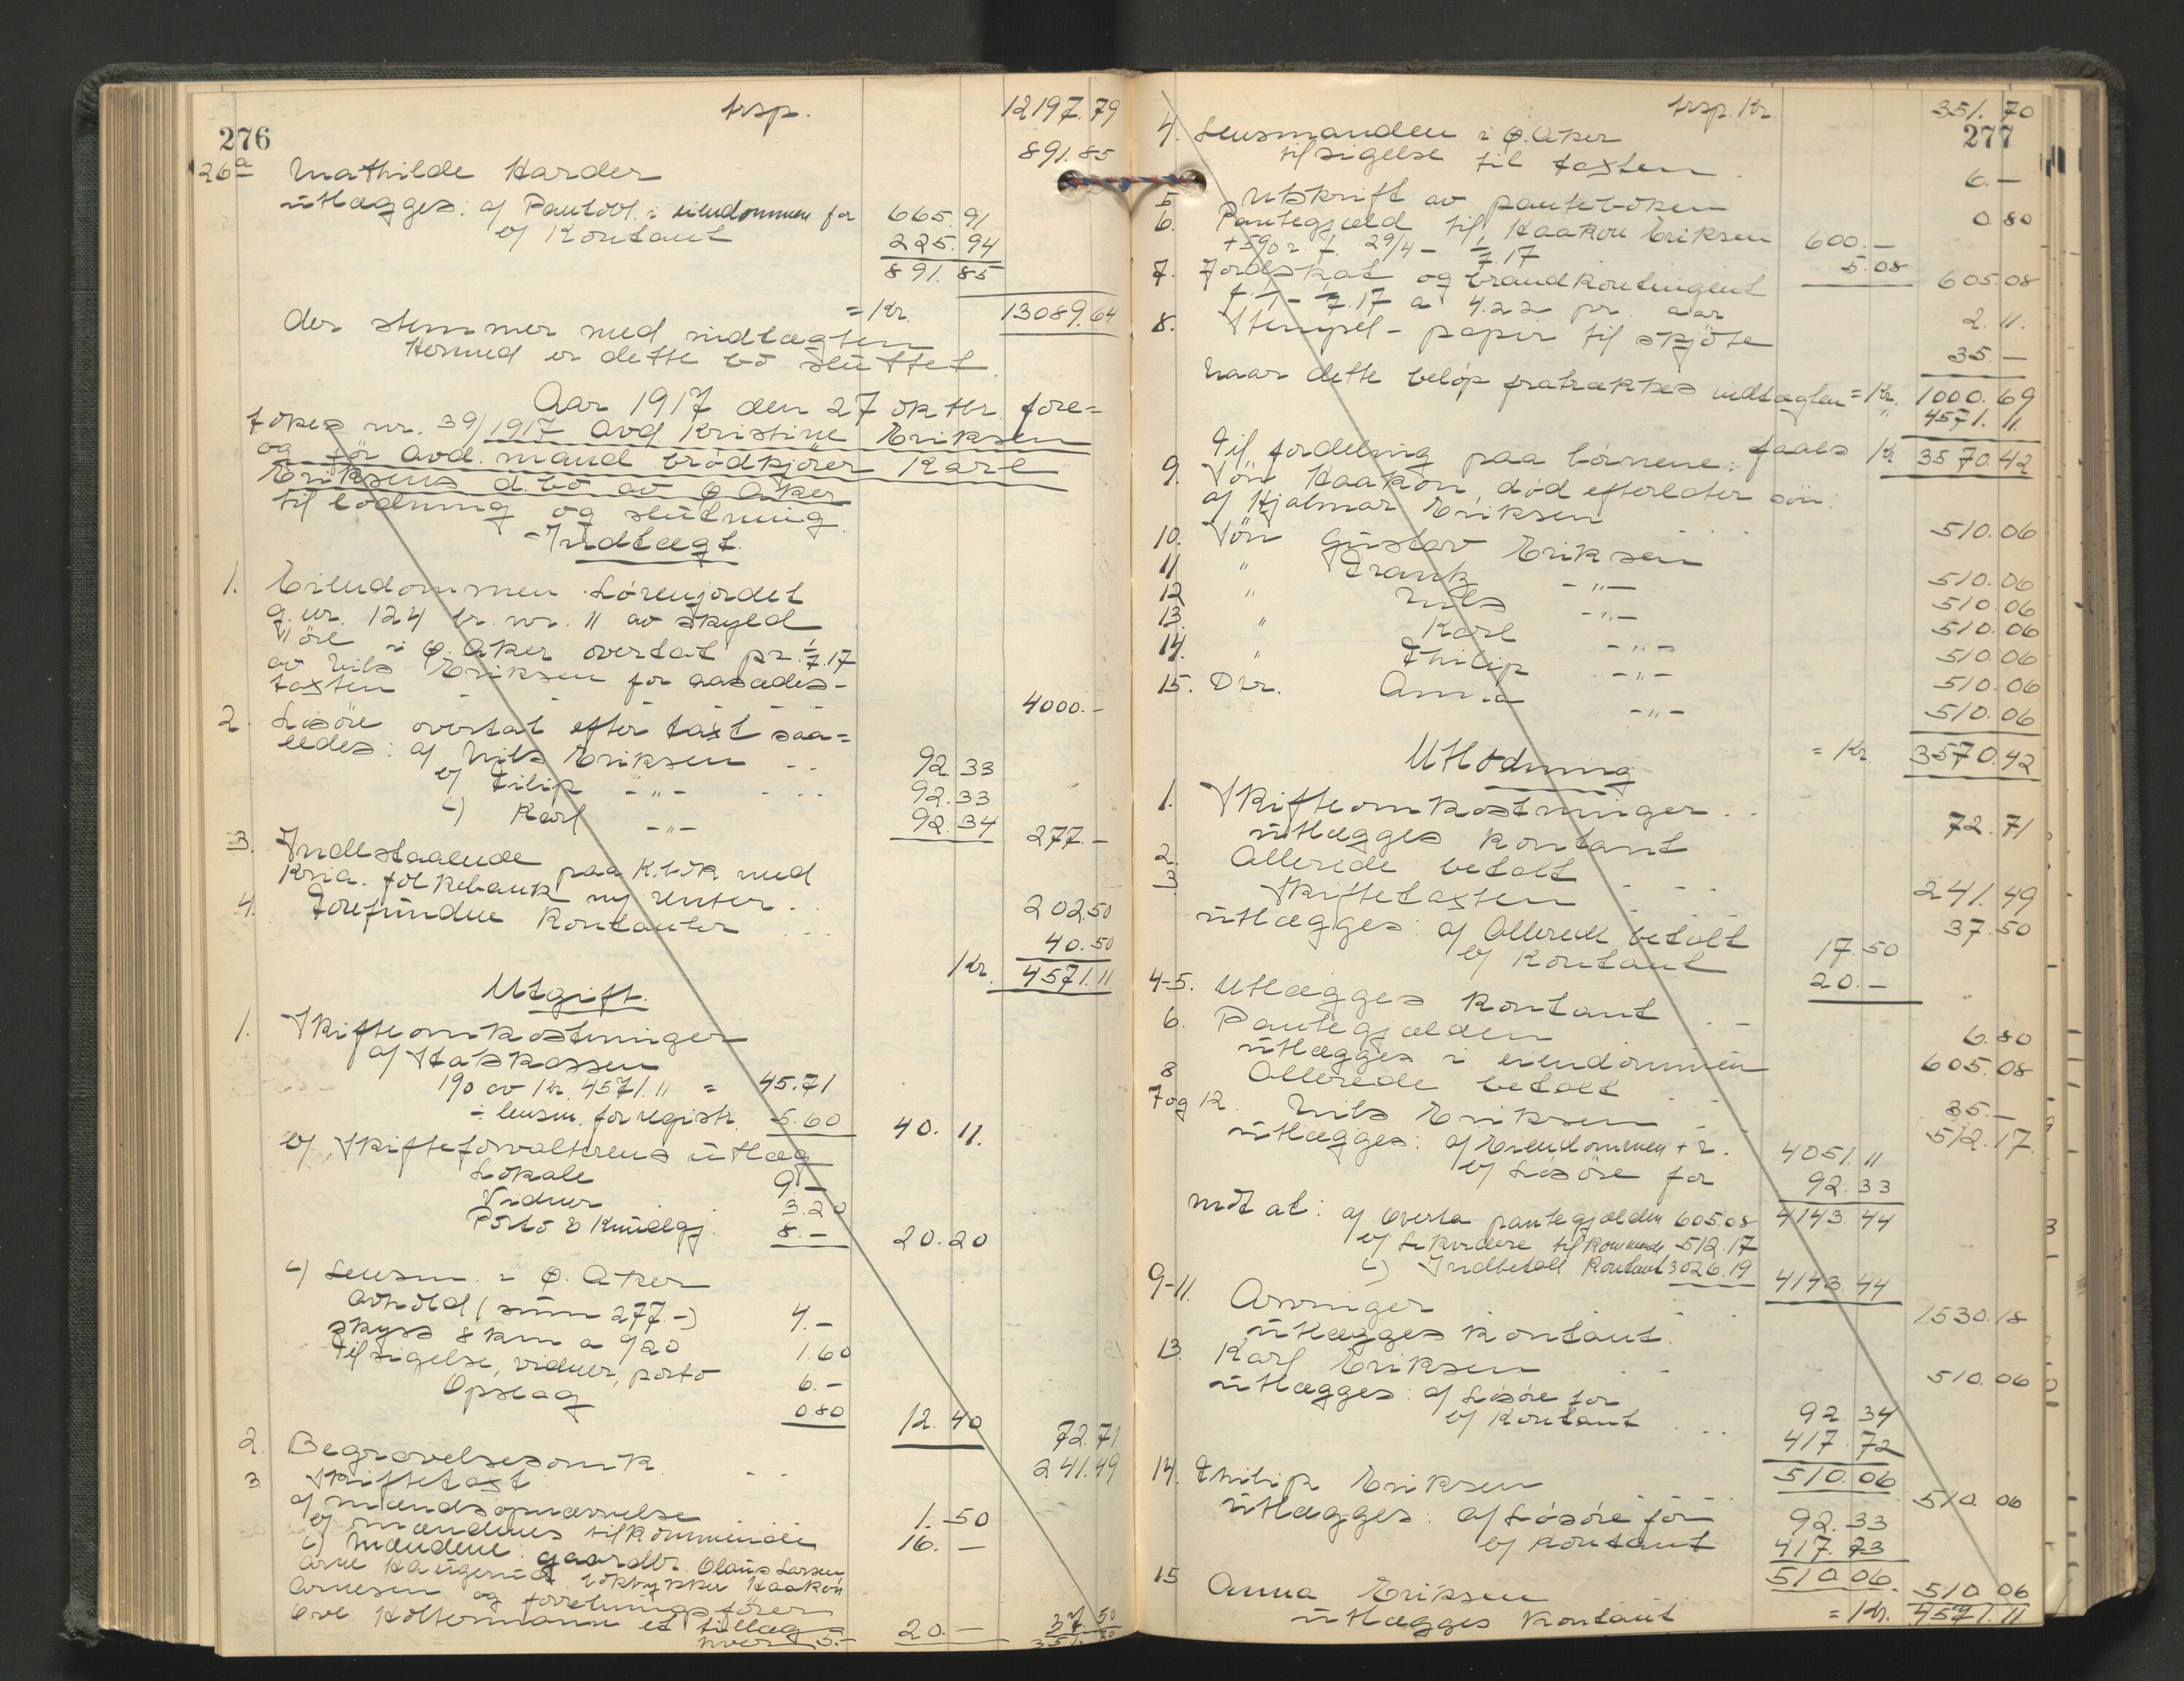 trsp. 12197.79
276
26a Mathilde Harder 891.85
utlægges: a/ Pantobl. i eiendommen for 665.91
b/ Kontant 225.94
891.85
= Kr. 13089.64
der stemmer med indtægten
Hermed er dette bo sluttet.
Aar 1917 den 27 oktbr. fore=
tokes nr. 39/1917 avd. Kristine Eriksen
og før avd. mand brødkjører Karl
Eriksens d.bo av Ø. Aker
til lodning og slutning.
Indtægt.
1. Eiendommen Lørenjordet
g.nr. 124 br. nr. 11 av skyld
11 øre i Ø. Aker overtat pr. 1/7.17
av Nils Eriksen for aasædes-
taxten - - - - - 4000.-
2. Løsøre overtat efter taxt saa=
ledes: a/ Nils Eriksen - - 92.33
b/ Filip -"- - - - 92.33
c) Karl -"- 92.34 277.-
3. Indestaaende paa K.bok med
Kria. folkebank m/ renter . . 202.50
4. Forefundne Kontanter . . . 40.50
Kr. 4571.11
Utgift.
1. Skifteomkostninger
a/ Statskassen
1% av Kr. 4571.11 = 45.71
÷ lensm. for registr. 5.60 40.11.
b/ Skifteforvalterens utlæg
Lokale 9.-
Vidner 3.20
Porto & Kundgj. 8.- 20.20
c) Lensm. i Ø. Aker
avhold (sum 277.-) 4.-
skyss 8 km a 9/20 1.60
Tilsigelse, vidner, porto 6.-
Opslag 0.80 12.40 72.71
2. Begravelsesomk. - - 241.49
3 Skiftetaxt
a/ mændsopnævnelse 1.50
b/ mændenes tilkommende 16.-
c) Mændene: gaardbr. Olaus Larsen
Arne Haugerud, Haakon
Arnesen og forretningsfører
Ove Holtermann et tillæg
hver 5.- 20.- 37.50
351.70
trsp. Kr. 351.70
277
4. Lensmanden i Ø. Aker
tilsigelse til taxten . 6.-
5 Utskrift av panteboken 0.80
6. Pantegjæld til Haakon Eriksen 600.-
+ 5% r. f. 29/4 - 1/7.17 5.08 605.08
7. Jordskat og brandkontingent
f. 1/1 - 1/7.17 a 4.22 pr. aar 2.11.
8. Stempel - papir til skjöte 35.-
= Kr. 1000.69
Naar dette beløp fratrækkes indtægten " 4571.11
faaes Kr. 3570.42
Til fordeling paa børnene:
9. Søn Haakon, død efterlater søn:
a/ Hjalmar Eriksen 510.06
10. Søn Gustav Eriksen 510.06
11 " Frank -"- 510.06
12 " Nils -"- 510.06
13. " Karl -"- 510.06
14. " Philip -"- 510.06
15. Dtr. Anna -"- 510.06
= Kr. 3570.42
Utlodning
1. Skifteomkostninger . . 72.71
utlægges kontant
2. Allerede betalt - - - 241.49
3 Skiftetaxten 37.50
utlægges: a/ Allerede betalt 17.50
b/ Kontant 20.-
4-5. Utlægges kontant . - 6.80
6. Pantegjælden 605.08
utlægges i eiendommen
8 Allerede betalt - - 35.-
7 og 12. Nils Eriksen - 512.17
utlægges: a/ Eiendommen + r. 4051.11
b/ Løsøre for 92.33
4143.44
mot at: a/ Overta pantegjælden 605.08
b/ Likvidere tilkommende 512.17
c) Indbetale Kontant 3026.19 4143.44
9-11. Arvinger - - 1530.18
utlægges kontant.
13. Karl Eriksen . - 510.06
utlægges: a/ Løsøre for 92.34
b/ Kontant . . . 417.72
510.06
14. Philip Eriksen - - 510.06
utlægges: a/ Løsøre for 92.33
b/ Kontant 417.73
510.06
15 Anna Eriksen 510.06
utlægges kontant = Kr. 4571.11